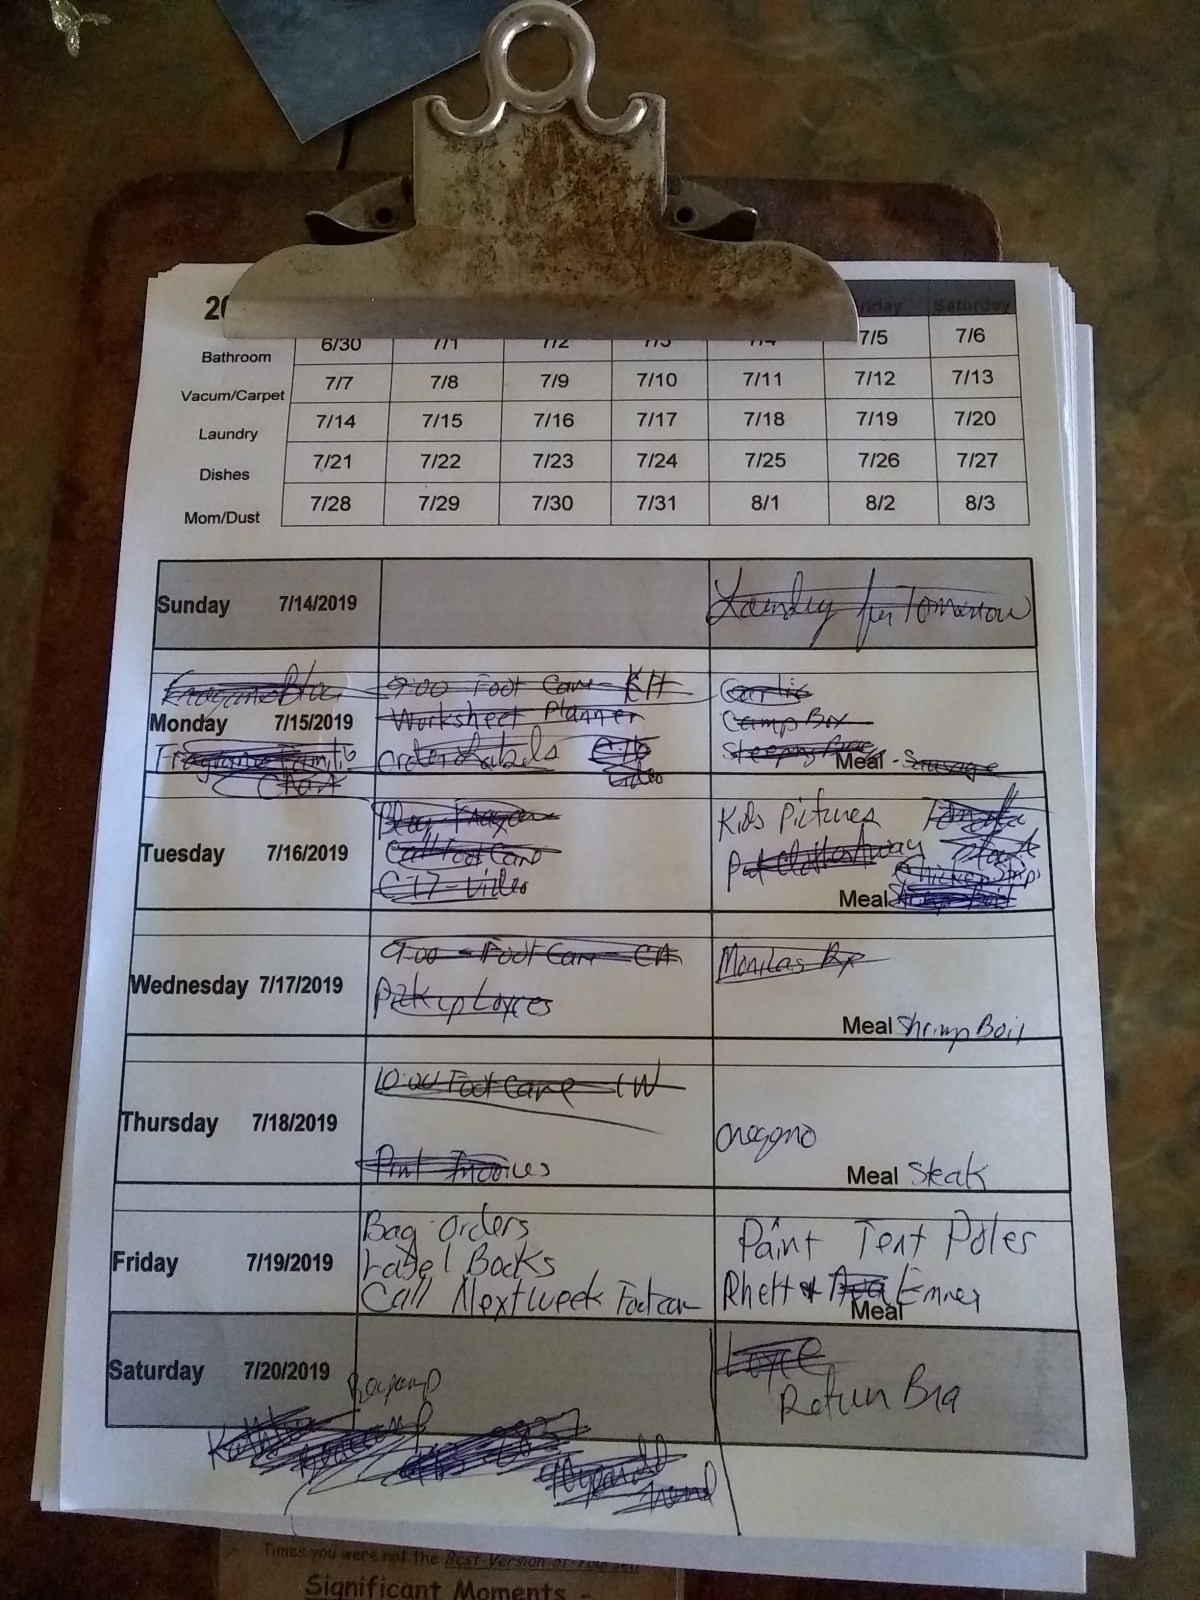 20
riday Saturday
Bathroom 6/30 7/1 7/2 7/3 7/4 7/5 7/6
Vacum/Carpet 7/7 7/8 7/9 7/10 7/11 7/12 7/13
Laundry 7/14 7/15 7/16 7/17 7/18 7/19 7/20
Dishes 7/21 7/22 7/23 7/24 7/25 7/26 7/27
Mom/Dust 7/28 7/29 7/30 7/31 8/1 8/2 8/3
Sunday 7/14/2019 Laundry for Tomorrow
9:00 Foot Care - KH Garlic
Monday 7/15/2019 Worksheet Planner Camp Box
Order Labels Meal - Sausage
Kids Pictures
Tuesday 7/16/2019 Call Foot Care Put Clothes Away
C17-Video Chicken Strips
Meal Shrimp Boil
9:00 - Foot Care - CA Monicas Rx
Wednesday 7/17/2019 Pick up Loyces
Meal Shrimp Boil
10:00 Foot Care
Thursday 7/18/2019 oregano
Print Invoices Meal Steak
Bag Orders Paint Tent Poles
Friday 7/19/2019 Label Books
Call Next week Footcare Rhett + Ava Emmer
Meal
Saturday 7/20/2019 Loyce
Return Bra
Times you were not the Best-Version-of-Yourself
Significant Moments -